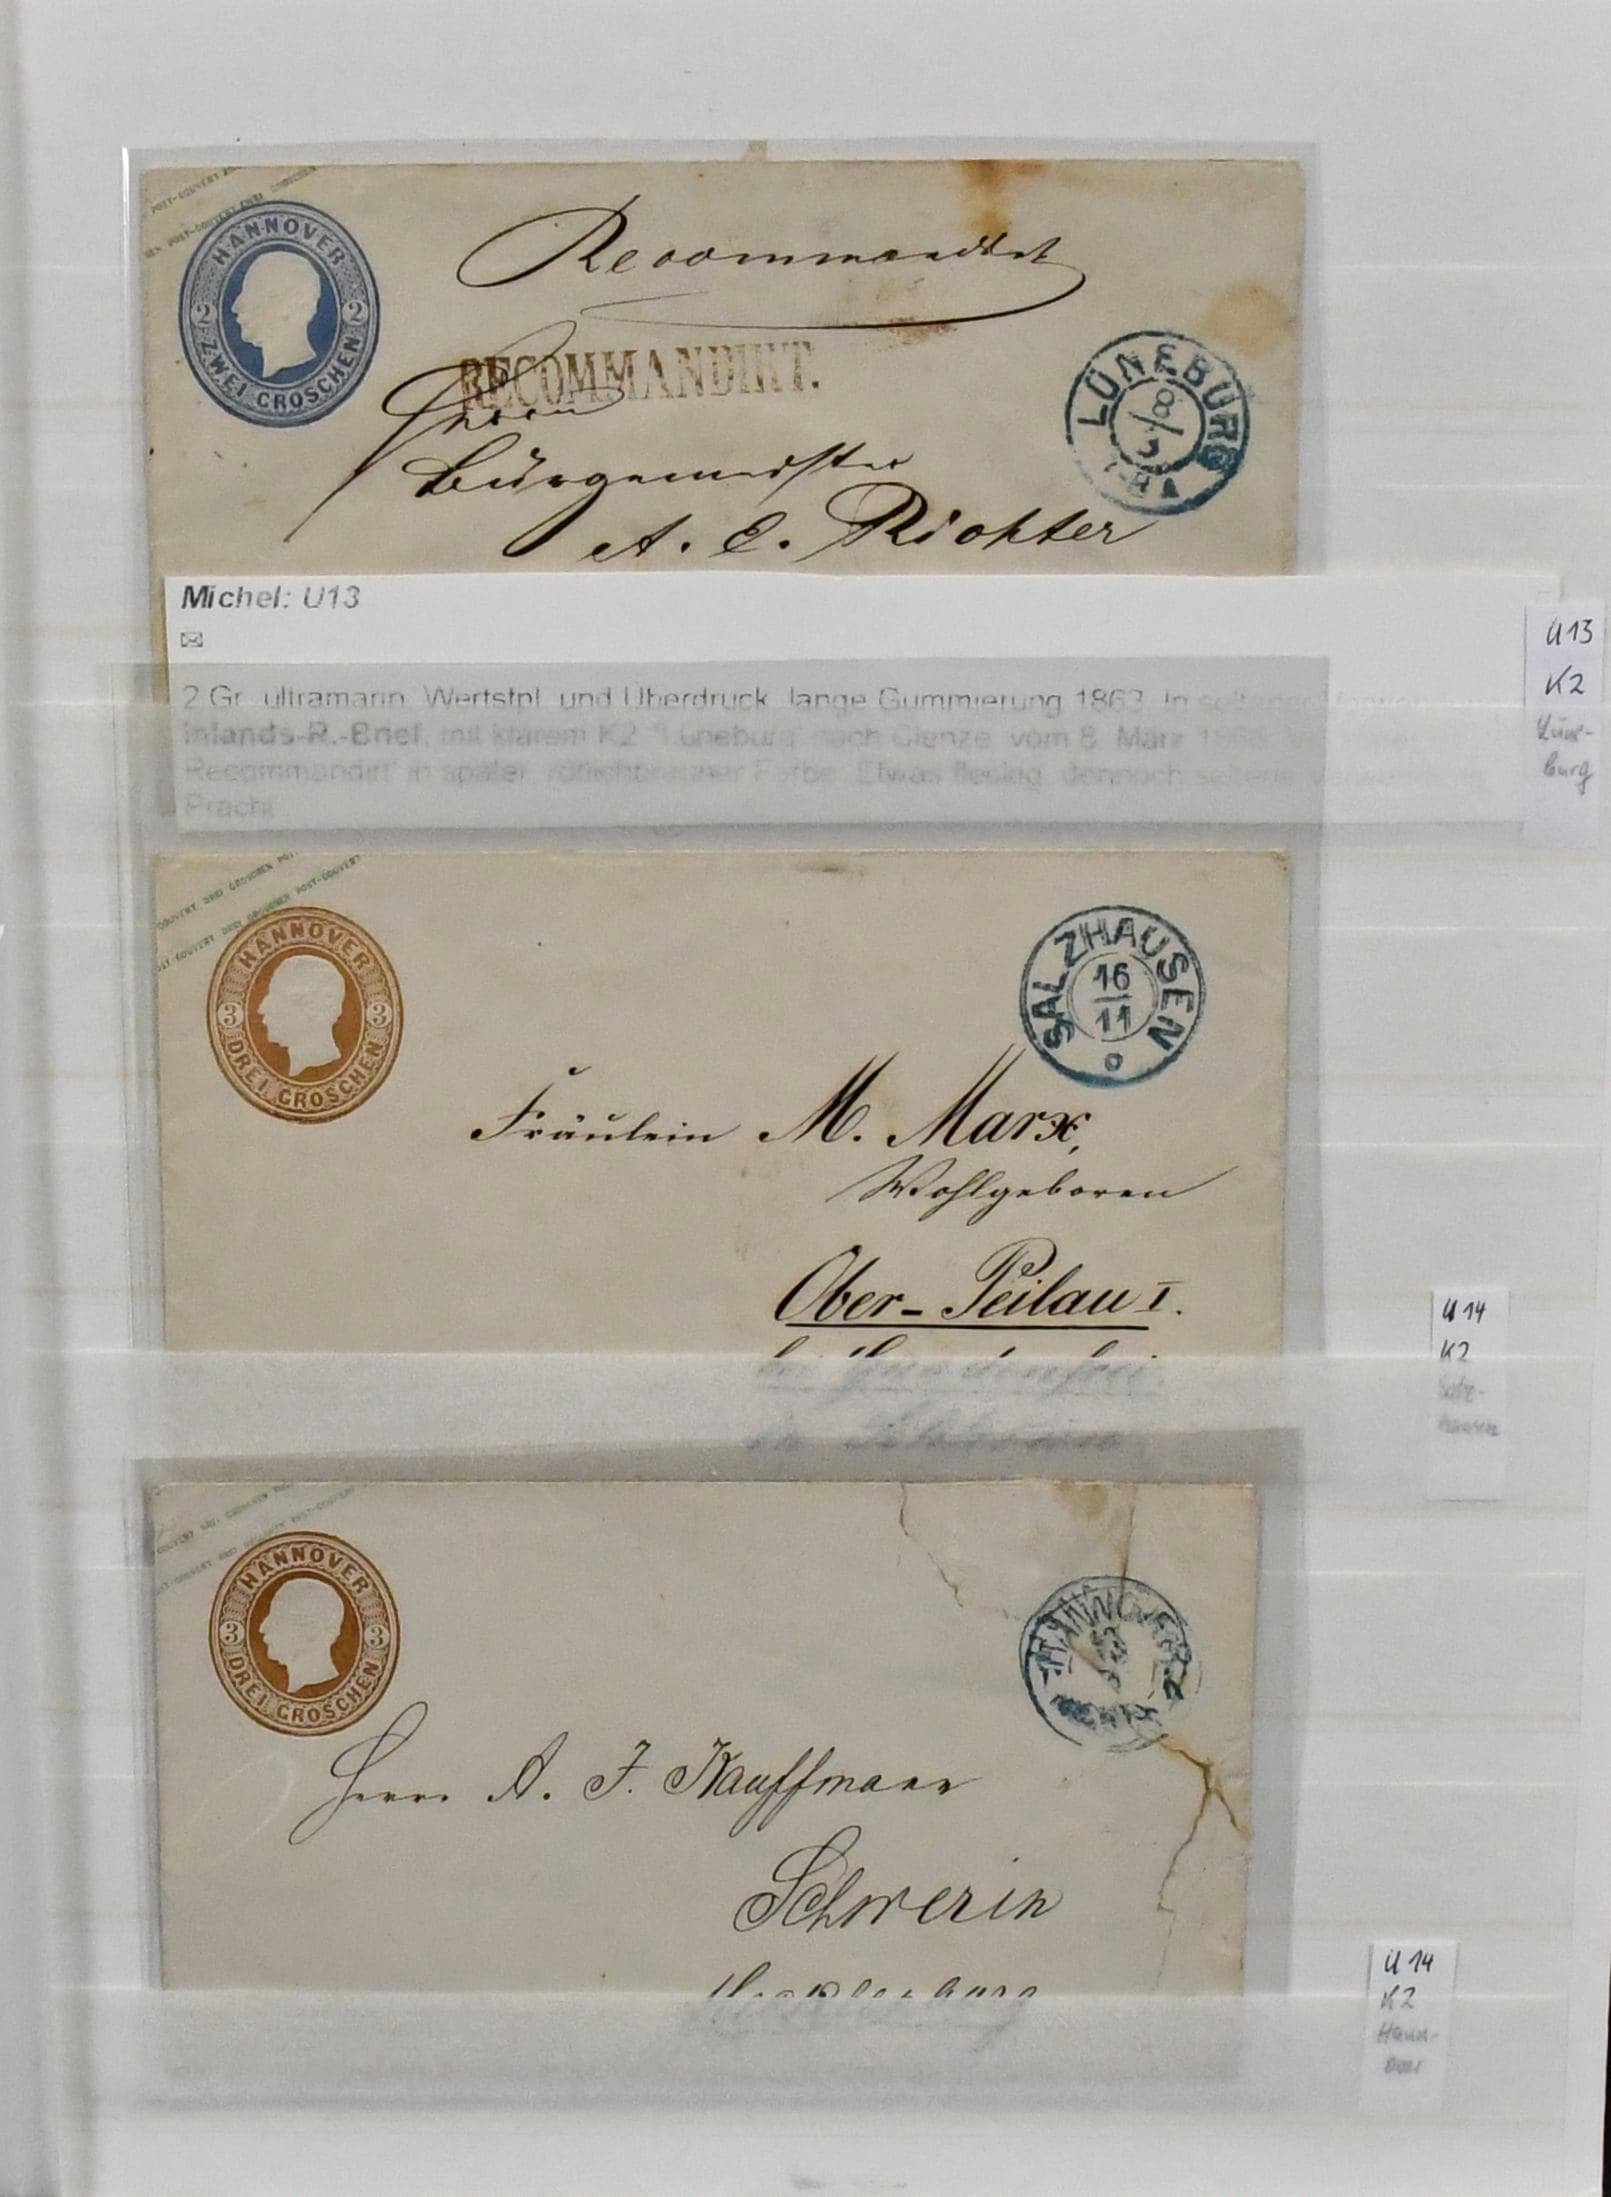 HANNOVER
2 2
ZWEI GROSCHEN
Recommandirt
RECOMMANDIRT.
LÜNEBURG
8/3
Herrn
Bürgermeister
A. C. Richter
Michel: U13
2 Gr. ultramarin, Wertstpl. und Überdruck, lange Gummierung 1863. In
Inlands-R.-Brief, mit klarem K2 "Lüneburg" nach Clenze vom 8. März
Recommandirt" in später, rötlichbrauner Farbe. Etwas fleckig, dennoch
Pracht
U13
K2
Lüne-
burg
COUVERT DREI GROSCHEN POST-
POST-COUVERT DREI GROSCHEN POST-COUVERT
HANNOVER
3 3
DREI GROSCHEN
SALZHAUSEN
16
11
Fräulein M. Marx,
Wohlgeboren
Ober-Peilau I.
U14
K2
Salz-
hausen
HANNOVER
3 3
DREI GROSCHEN
HANNOVER
Herrn A. J. Kauffmann
Schwerin
U14
K2
Hann-
over